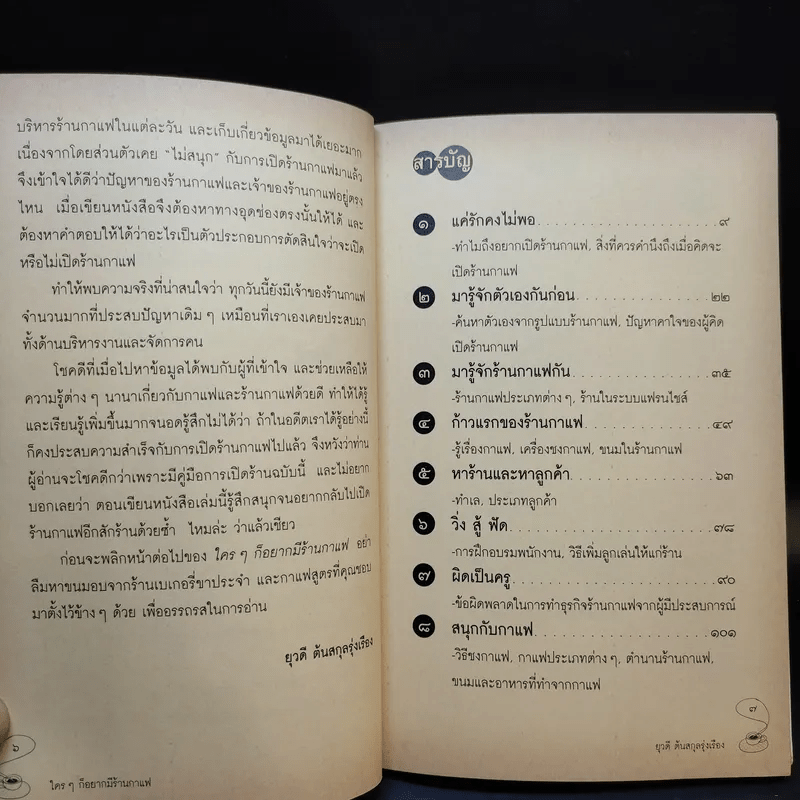 บริหารร้านกาแฟในแต่ละวัน และเก็บเกี่ยวข้อมูลมาได้เยอะมาก
เนื่องจากโดยส่วนตัวเคย "ไม่สนุก" กับการเปิดร้านกาแฟมาแล้ว
จึงเข้าใจได้ดีว่าปัญหาของร้านกาแฟและเจ้าของร้านกาแฟอยู่ตรง
ไหน เมื่อเขียนหนังสือจึงต้องหาทางอุดช่องตรงนั้นให้ได้ และ
ต้องหาคำตอบให้ได้ว่าอะไรเป็นตัวประกอบการตัดสินใจว่าจะเปิด
หรือไม่เปิดร้านกาแฟ
ทำให้พบความจริงที่น่าสนใจว่า ทุกวันนี้ยังมีเจ้าของร้านกาแฟ
จำนวนมากที่ประสบปัญหาเดิม ๆ เหมือนที่เราเองเคยประสบมา
ทั้งด้านบริหารงานและจัดการคน
โชคดีที่เมื่อไปหาข้อมูลได้พบกับผู้ที่เข้าใจ และช่วยเหลือให้
ความรู้ต่าง ๆ นานาเกี่ยวกับกาแฟและร้านกาแฟด้วยดี ทำให้ได้รู้
และเรียนรู้เพิ่มขึ้นมากจนอดรู้สึกไม่ได้ว่า ถ้าในอดีตเราได้รู้อย่างนี้
ก็คงประสบความสำเร็จกับการเปิดร้านกาแฟไปแล้ว จึงหวังว่าท่าน
ผู้อ่านจะโชคดีกว่าเพราะมีคู่มือการเปิดร้านฉบับนี้ และไม่อยาก
บอกเลยว่า ตอนเขียนหนังสือเล่มนี้รู้สึกสนุกจนอยากกลับไปเปิด
ร้านกาแฟอีกสักร้านด้วยซ้ำ ไหมล่ะ ว่าแล้วเชียว
ก่อนจะพลิกหน้าต่อไปของ ใคร ๆ ก็อยากมีร้านกาแฟ อย่า
ลืมหาขนมอบจากร้านเบเกอรี่ขาประจำ และกาแฟสูตรที่คุณชอบ
มาตั้งไว้ข้าง ๆ ด้วย เพื่ออรรถรสในการอ่าน
ยุวดี ต้นสกุลรุ่งเรือง
๖
ใคร ๆ ก็อยากมีร้านกาแฟ
สารบัญ
๑ แค่รักคงไม่พอ ๙
-ทำไมถึงอยากเปิดร้านกาแฟ, สิ่งที่ควรคำนึงถึงเมื่อคิดจะ
เปิดร้านกาแฟ
๒ มารู้จักตัวเองกันก่อน ๒๒
-ค้นหาตัวเองจากรูปแบบร้านกาแฟ, ปัญหาคาใจของผู้คิด
เปิดร้านกาแฟ
๓ มารู้จักร้านกาแฟกัน ๓๕
-ร้านกาแฟประเภทต่าง ๆ, ร้านในระบบแฟรนไชส์
๔ ก้าวแรกของร้านกาแฟ ๔๙
-รู้เรื่องกาแฟ, เครื่องชงกาแฟ, ขนมในร้านกาแฟ
๕ หาร้านและหาลูกค้า ๖๓
-ทำเล, ประเภทลูกค้า
๖ วิ่ง สู้ ฟัด ๗๘
-การฝึกอบรมพนักงาน, วิธีเพิ่มลูกเล่นให้แก่ร้าน
๗ ผิดเป็นครู ๙๐
-ข้อผิดพลาดในการทำธุรกิจร้านกาแฟจากผู้มีประสบการณ์
๘ สนุกกับกาแฟ ๑๐๑
-วิธีชงกาแฟ, กาแฟประเภทต่าง ๆ, ตำนานร้านกาแฟ,
ขนมและอาหารที่ทำจากกาแฟ
๗
ยุวดี ต้นสกุลรุ่งเรือง